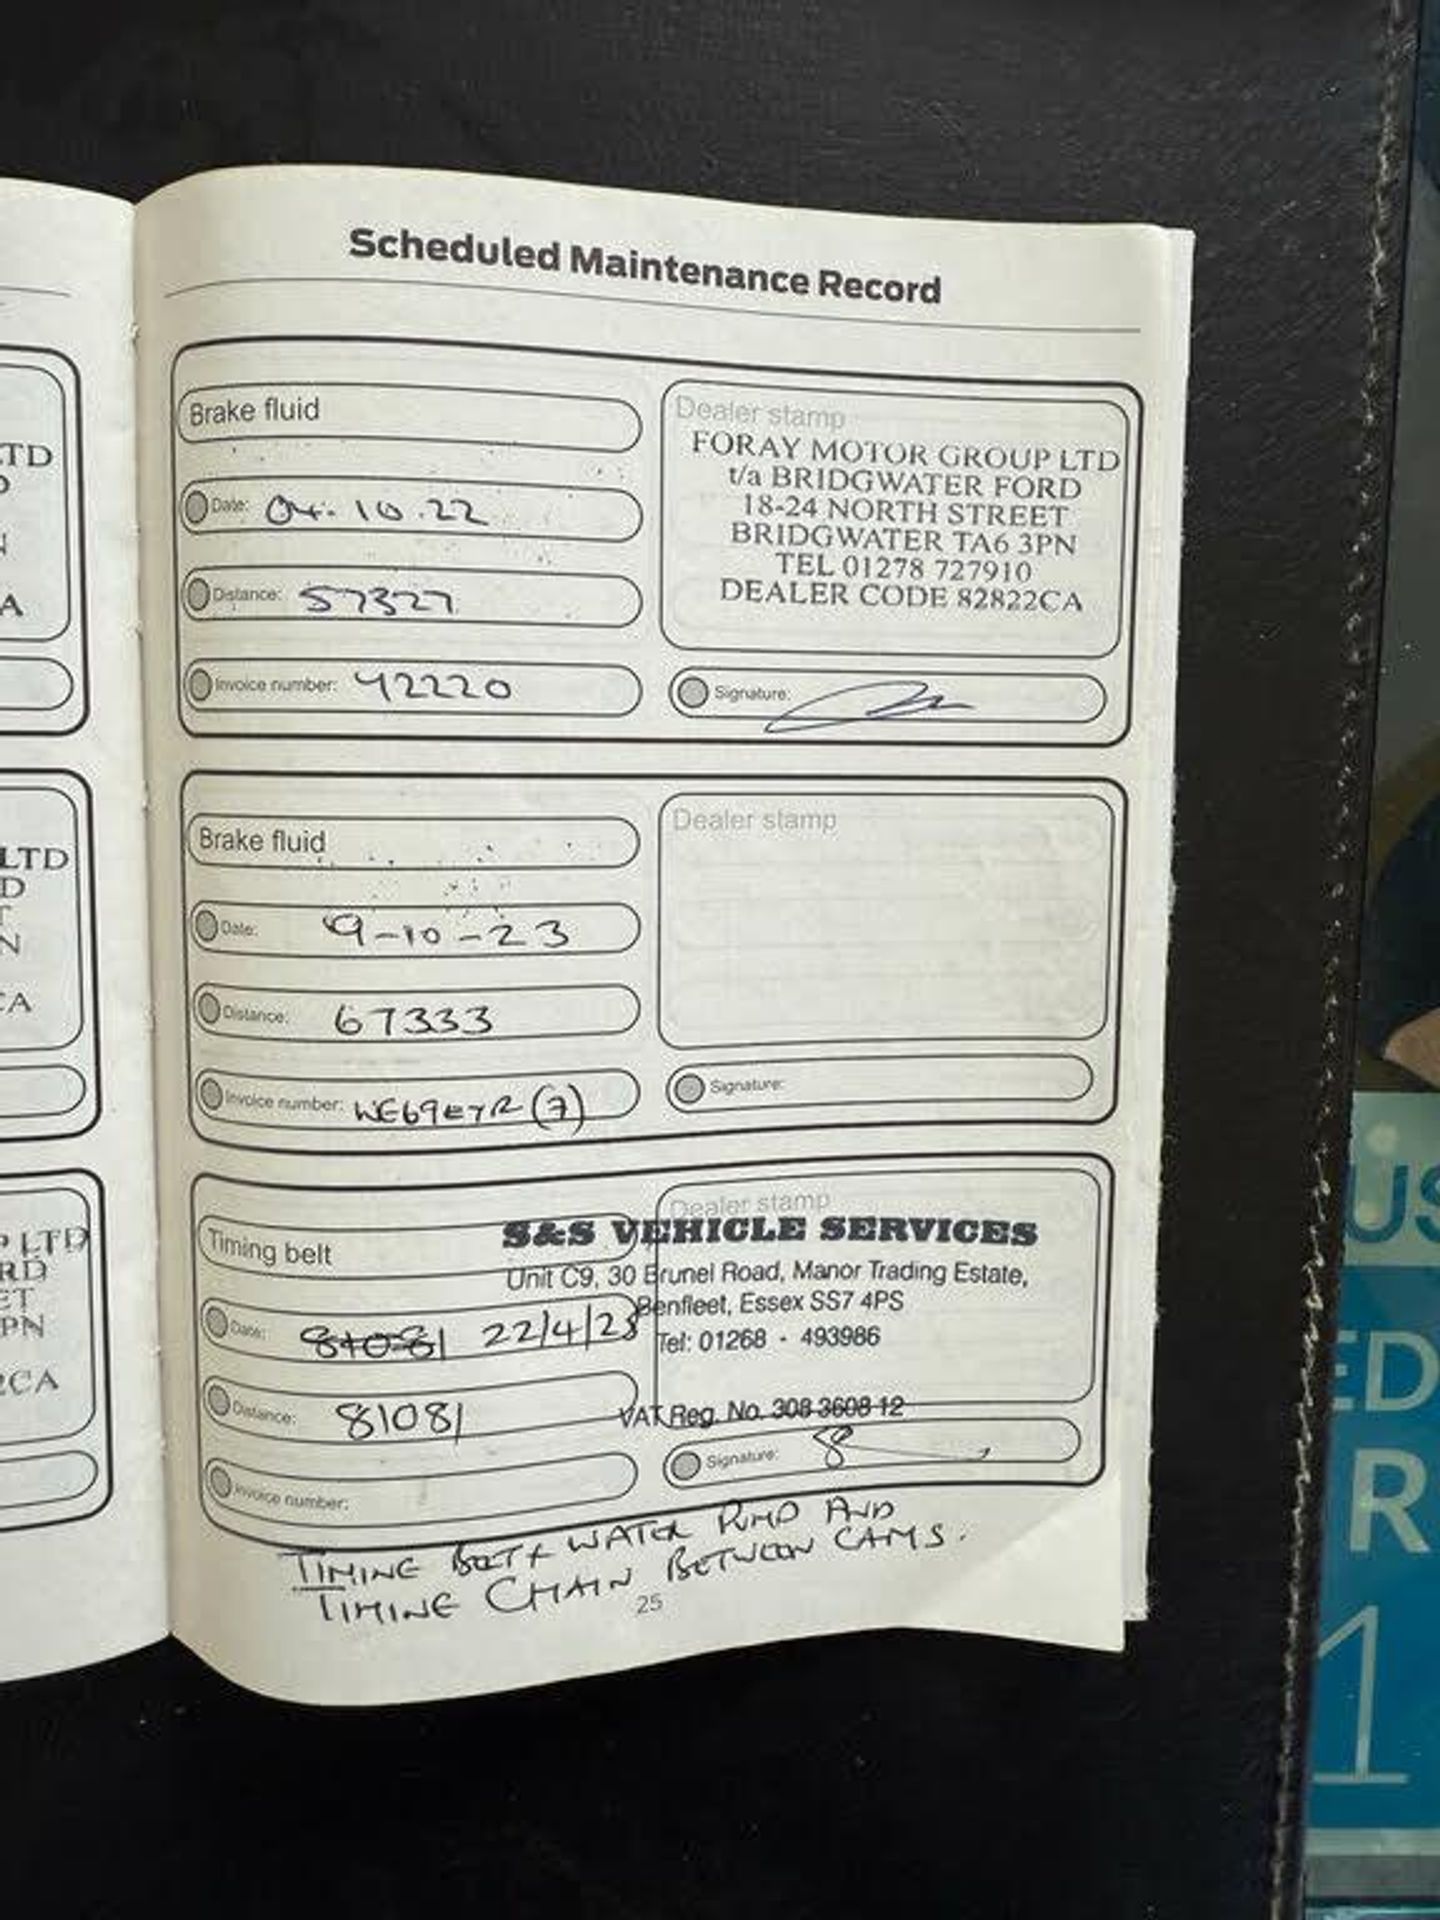 LTD
N
A
LTD
D
T
N
CA
P LTD
RD
ET
PN
2CA
Scheduled Maintenance Record
Brake fluid
Date: 04.10.22
Distance: 57327
Invoice number: 42220
Dealer stamp
FORAY MOTOR GROUP LTD
t/a BRIDGWATER FORD
18-24 NORTH STREET
BRIDGWATER TA6 3PN
TEL 01278 727910
DEALER CODE 82822CA
Signature:
Brake fluid
Date: 9-10-23
Distance: 67333
Invoice number: WE69EYR (7)
Dealer stamp
Signature:
Timing belt
Date: 81081 22/4/25
Distance: 81081
Invoice number:
Dealer stamp
S&S VEHICLE SERVICES
Unit C9, 30 Brunel Road, Manor Trading Estate,
Benfleet, Essex SS7 4PS
Tel: 01268 - 493986
VAT Reg. No. 308 3608 12
Signature:
TIMING BELT + WATER PUMP AND
TIMING CHAIN BETWEEN CAMS.
25
US
ED
R
1